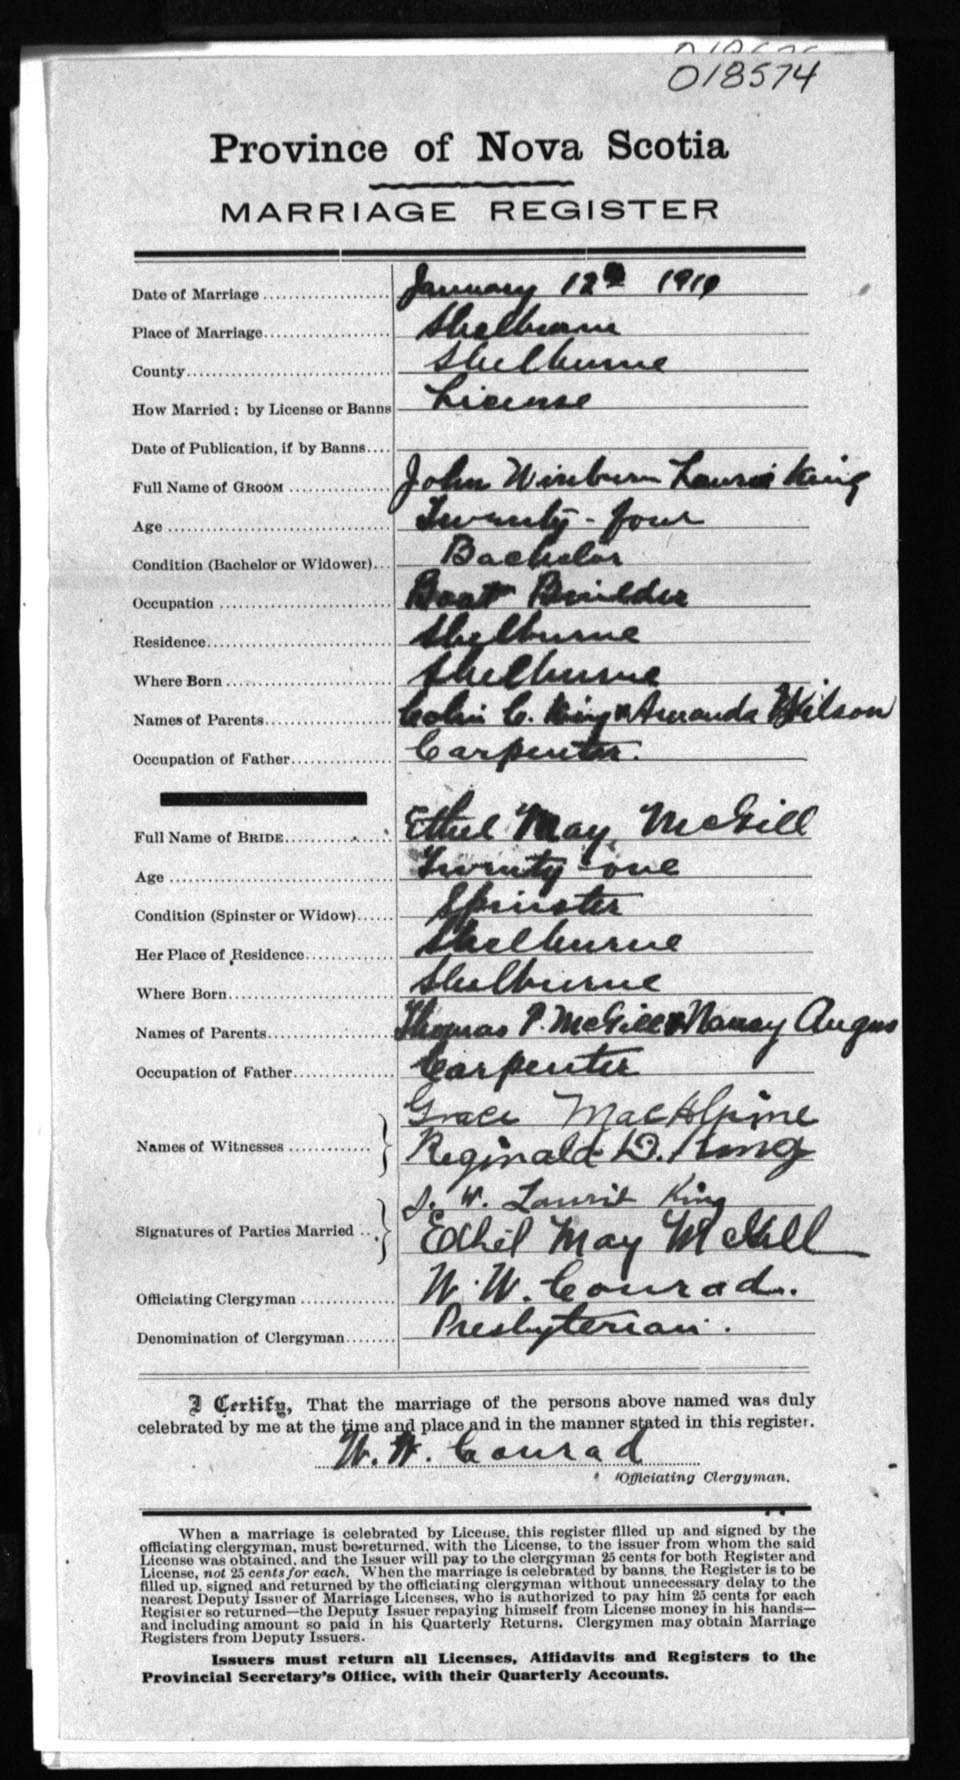 018574
Province of Nova Scotia
MARRIAGE REGISTER
Date of Marriage .................... January 12th 191
Place of Marriage................... Shelburne
County................................ Shelburne
How Married; by License or Banns License
Date of Publication, if by Banns....
Full Name of GROOM ................ John Winburn Laurie King
Age .................................... Twenty-four
Condition (Bachelor or Widower)... Bachelor
Occupation ........................... Boat Builder
Residence............................. Shelburne
Where Born ........................... Shelburne
Names of Parents................... Colin C. King & Amanda Wilson
Occupation of Father............... Carpenter.
Full Name of BRIDE.................. Ethel May McGill
Age .................................... Twenty-one
Condition (Spinster or Widow)...... Spinster
Her Place of Residence............. Shelburne
Where Born........................... Shelburne
Names of Parents................... Thomas P. McGill & Nancy Angus
Occupation of Father............... Carpenter
Grace MacAlpine
Names of Witnesses ............
Reginald D. King
J. W. Laurie King
Signatures of Parties Married ....
Ethel May McGill
Officiating Clergyman .............. W. W. Conrad.
Denomination of Clergyman........ Presbyterian.
I Certify, That the marriage of the persons above named was duly
celebrated by me at the time and place and in the manner stated in this register.
W. W. Conrad
Officiating Clergyman.
When a marriage is celebrated by License, this register filled up and signed by the
officiating clergyman, must be returned, with the License, to the issuer from whom the said
License was obtained, and the Issuer will pay to the clergyman 25 cents for both Register and
License, not 25 cents for each. When the marriage is celebrated by banns, the Register is to be
filled up, signed and returned by the officiating clergyman without unnecessary delay to the
nearest Deputy Issuer of Marriage Licenses, who is authorized to pay him 25 cents for each
Register so returned—the Deputy Issuer repaying himself from License money in his hands—
and including amount so paid in his Quarterly Returns. Clergymen may obtain Marriage
Registers from Deputy Issuers.
Issuers must return all Licenses, Affidavits and Registers to the
Provincial Secretary's Office, with their Quarterly Accounts.